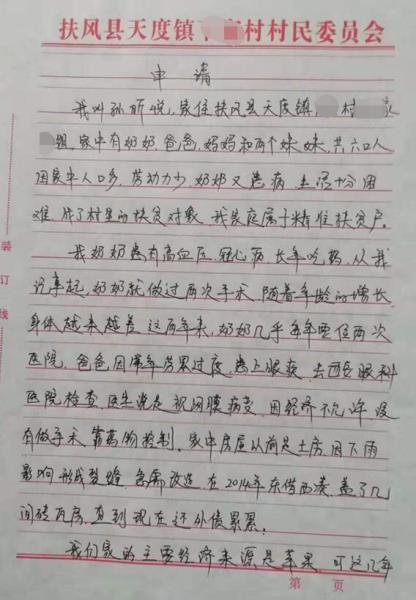 扶风县天度镇 村村民委员会
申请
我叫孙昕悦,家住扶风县天度镇 村
组,家中有奶奶、爸爸、妈妈和两个妹妹,共六口人
因家中人口多,劳动力少,奶奶又患病,生活十分困
难,成了村里的扶贫对象,我家庭属于精准扶贫户。
我奶奶患有高血压、冠心病,长年吃药,从我
记事起,奶奶就做过两次手术,随着年龄的增长,
身体越来越差,这两年来,奶奶几乎每年要住两次
医院,爸爸因常年劳累过度,患上眼疾,去西安眼科
医院检查,医生说是视网膜病变,因经济不允许,没
有做手术,靠药物控制。家中房屋以前是土房,因下雨
影响,形成裂缝,急需改造,在2014年东借西凑,盖了几
间砖瓦房,直到现在还外债累累。
我们家的主要经济来源是苹果,可这几年
第 页
装
订
线